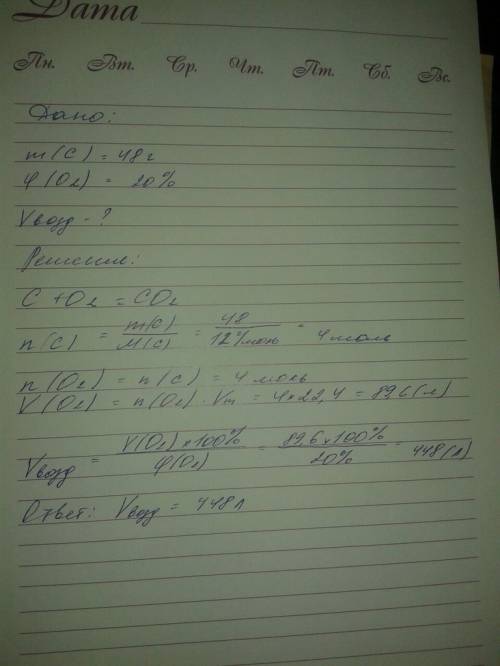 Дата
Пн. Вт. Ср. Чт. Пт. Сб. Вс.
Дано:
m(C) = 48 г
φ(O₂) = 20%
Vвозд - ?
Решение:
C + O₂ = CO₂
n(C) = m(C)/M(C) = 48/12г/моль = 4 моль
n(O₂) = n(C) = 4 моль
V(O₂) = n(O₂) · Vm = 4×22,4 = 89,6(л)
Vвозд = V(O₂)×100%/φ(O₂) = 89,6×100%/20% = 448(л)
Ответ: Vвозд = 448 л